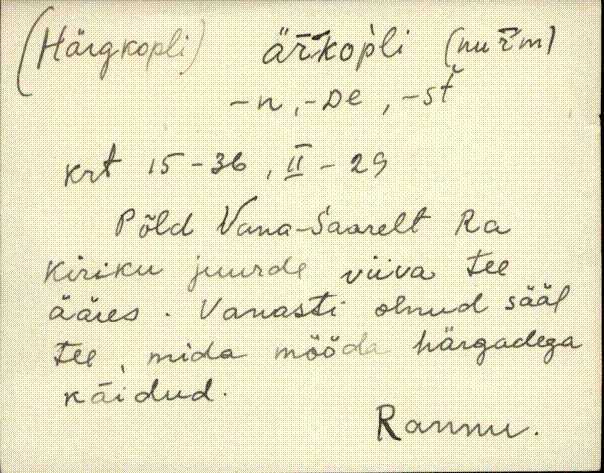 (Härgkopli) är̄kop̀li (nur̄m)
-n, -De, -st̆
krt 15-36, II-29
Põld Vana-Saarelt Ra
kiriku juurde viiva tee
ääres. Vanasti olnud sääl
tee, mida mööda härgadega
käidud.
Rannu.